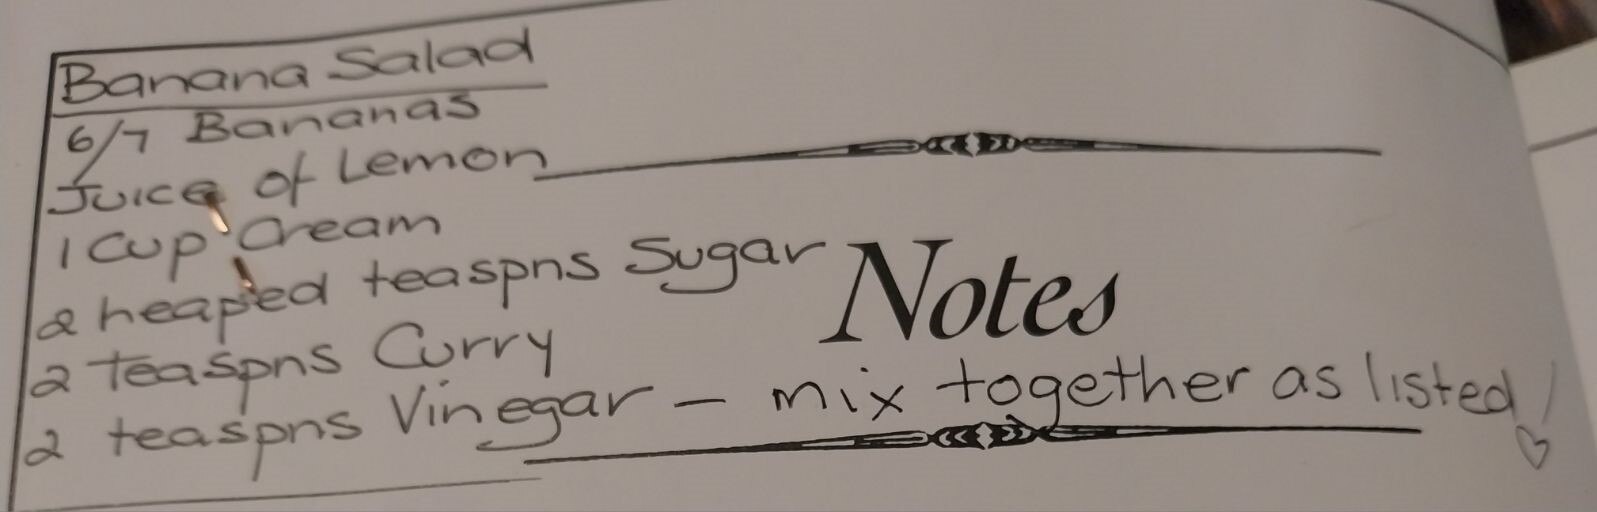 Banana Salad
6/7 Bananas
Juice of Lemon
1 Cup Cream
2 heaped teaspns Sugar
Notes
2 teaspns Curry
2 teaspns Vinegar - mix together as listed!